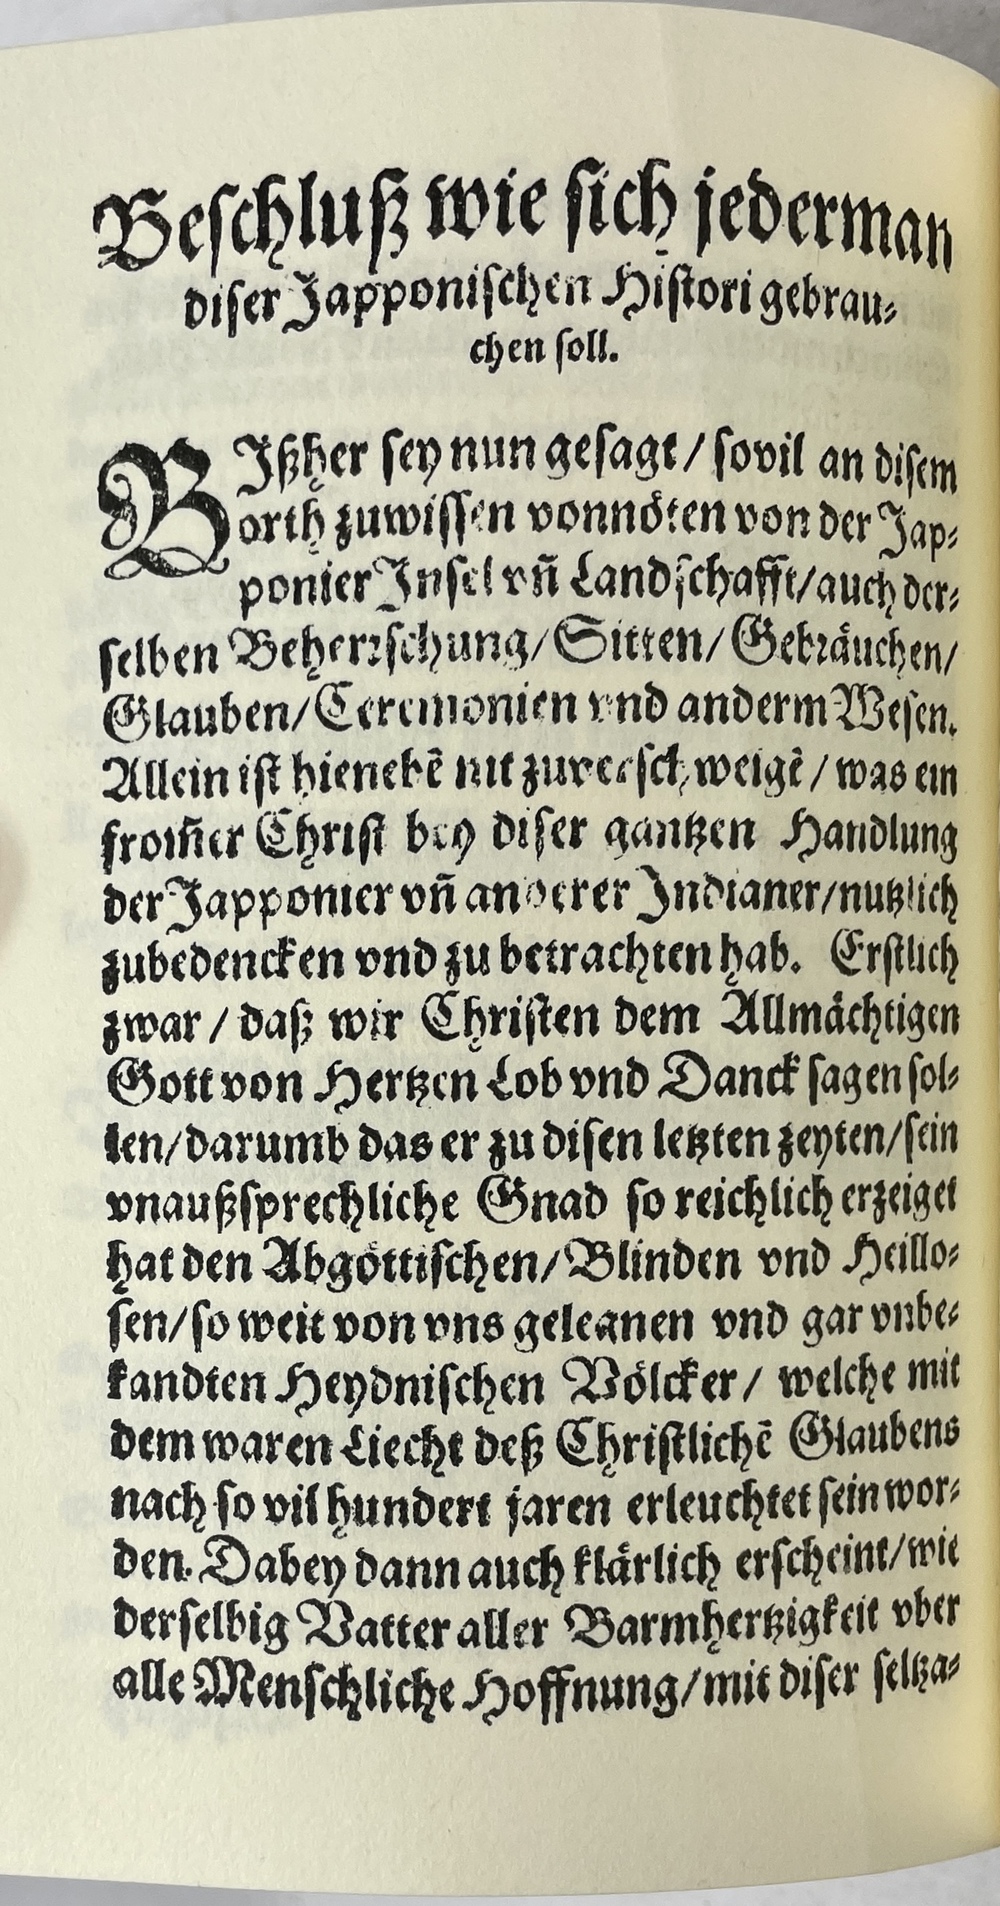 Beschluß wie sich jederman
diser Japponischen Histori gebrau⸗
chen soll.
BIßher sey nun gesagt / sovil an disem
orth zuwissen vonnöten von der Jap⸗
ponier Insel vñ Landschafft / auch der⸗
selben Beherrschung / Sitten / Gebräuchen /
Glauben / Ceremonien vnd anderm Wesen.
Allein ist hienebē nit zuverschweigē / was ein
from̃er Christ bey diser gantzen Handlung
der Japponier vñ anderer Indianer / nutzlich
zubedencken vnd zu betrachten hab. Erstlich
zwar / daß wir Christen dem Allmächtigen
Gott von Hertzen Lob vnd Danck sagen sol⸗
len / darumb das er zu disen letzten zeyten / sein
vnaußsprechliche Gnad so reichlich erzeiget
hat den Abgöttischen / Blinden vnd Heillo⸗
sen / so weit von vns gelegnen vnd gar vnbe⸗
kandten Heydnischen Völcker / welche mit
dem waren Liecht deß Christlichē Glaubens
nach so vil hundert jaren erleuchtet sein wor⸗
den. Dabey dann auch klärlich erscheint / wie
derselbig Vatter aller Barmhertzigkeit vber
alle Menschliche Hoffnung / mit diser seltza⸗